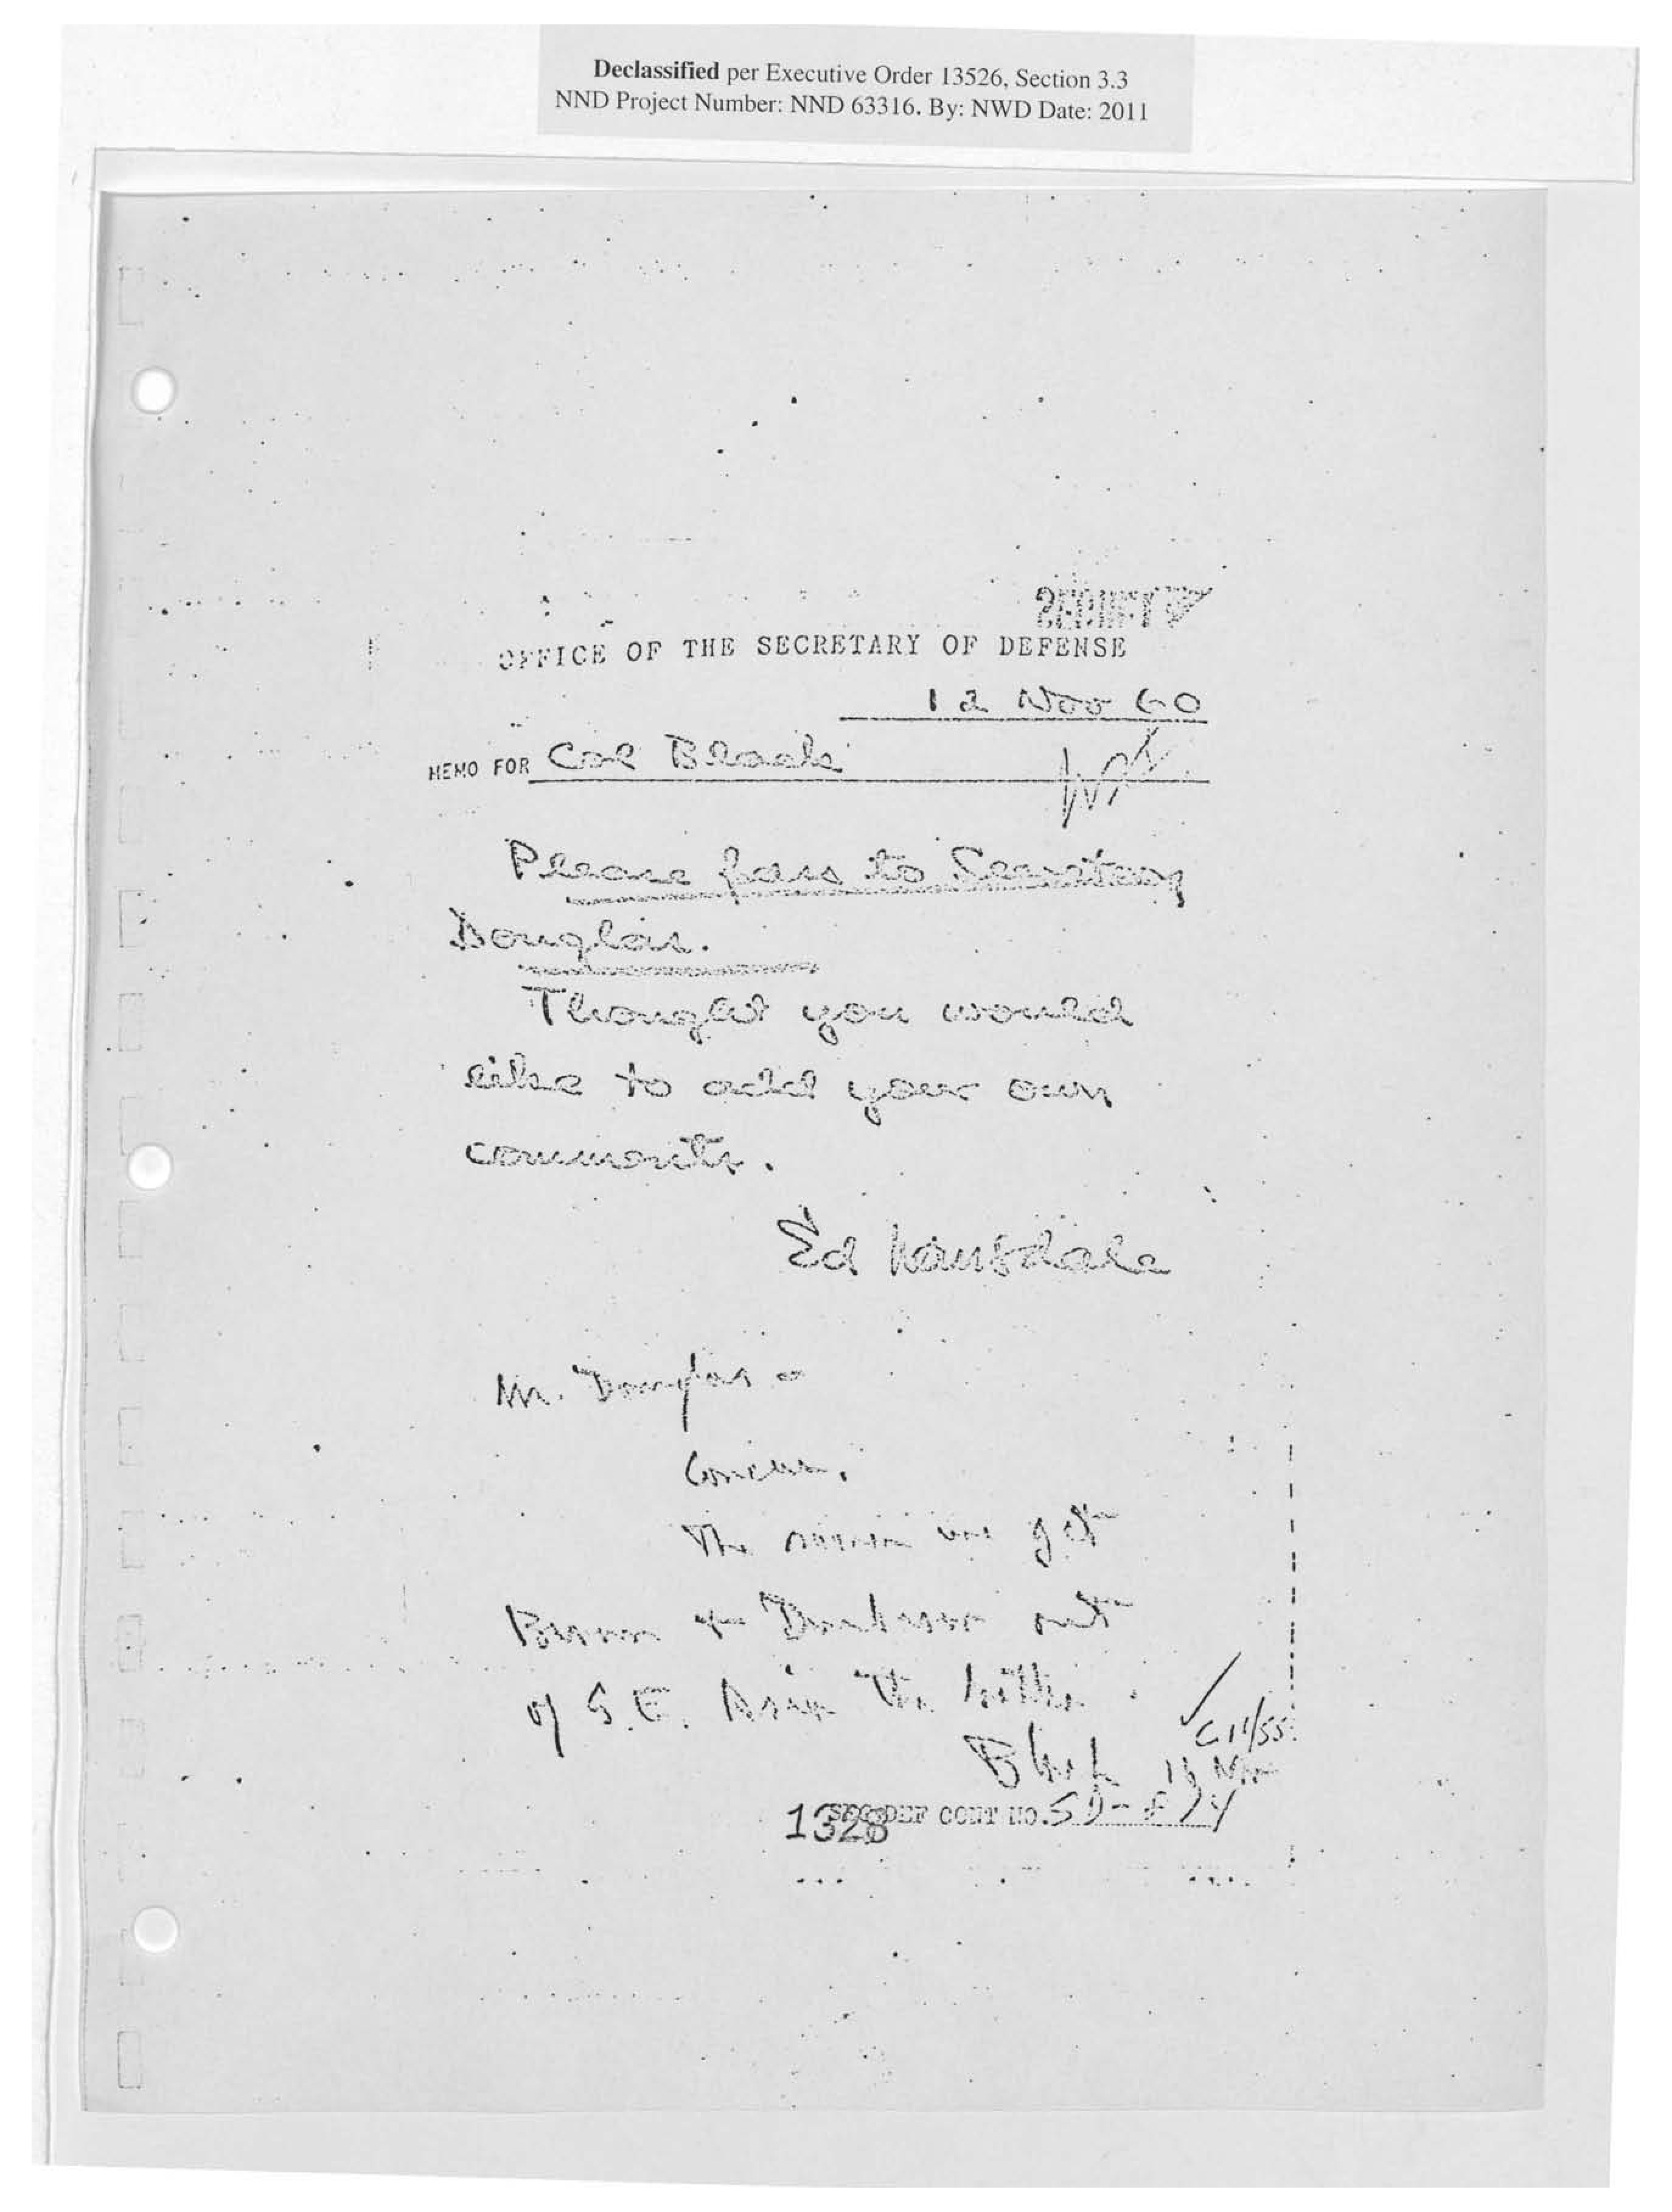 Declassified per Executive Order 13526, Section 3.3
NND Project Number: NND 63316. By: NWD Date: 2011
OFFICE OF THE SECRETARY OF DEFENSE
12 Nov 60
MEMO FOR Col Black
Please pass to Secretary
Douglas.
Thought you would
like to add your own
comments.
Ed Lansdale
Mr. Douglas -
Concur.
The sooner we get
Brown & out
of S.E. Asia the better.
Black 16 Nov
SEC DEF CONT NO.
1328